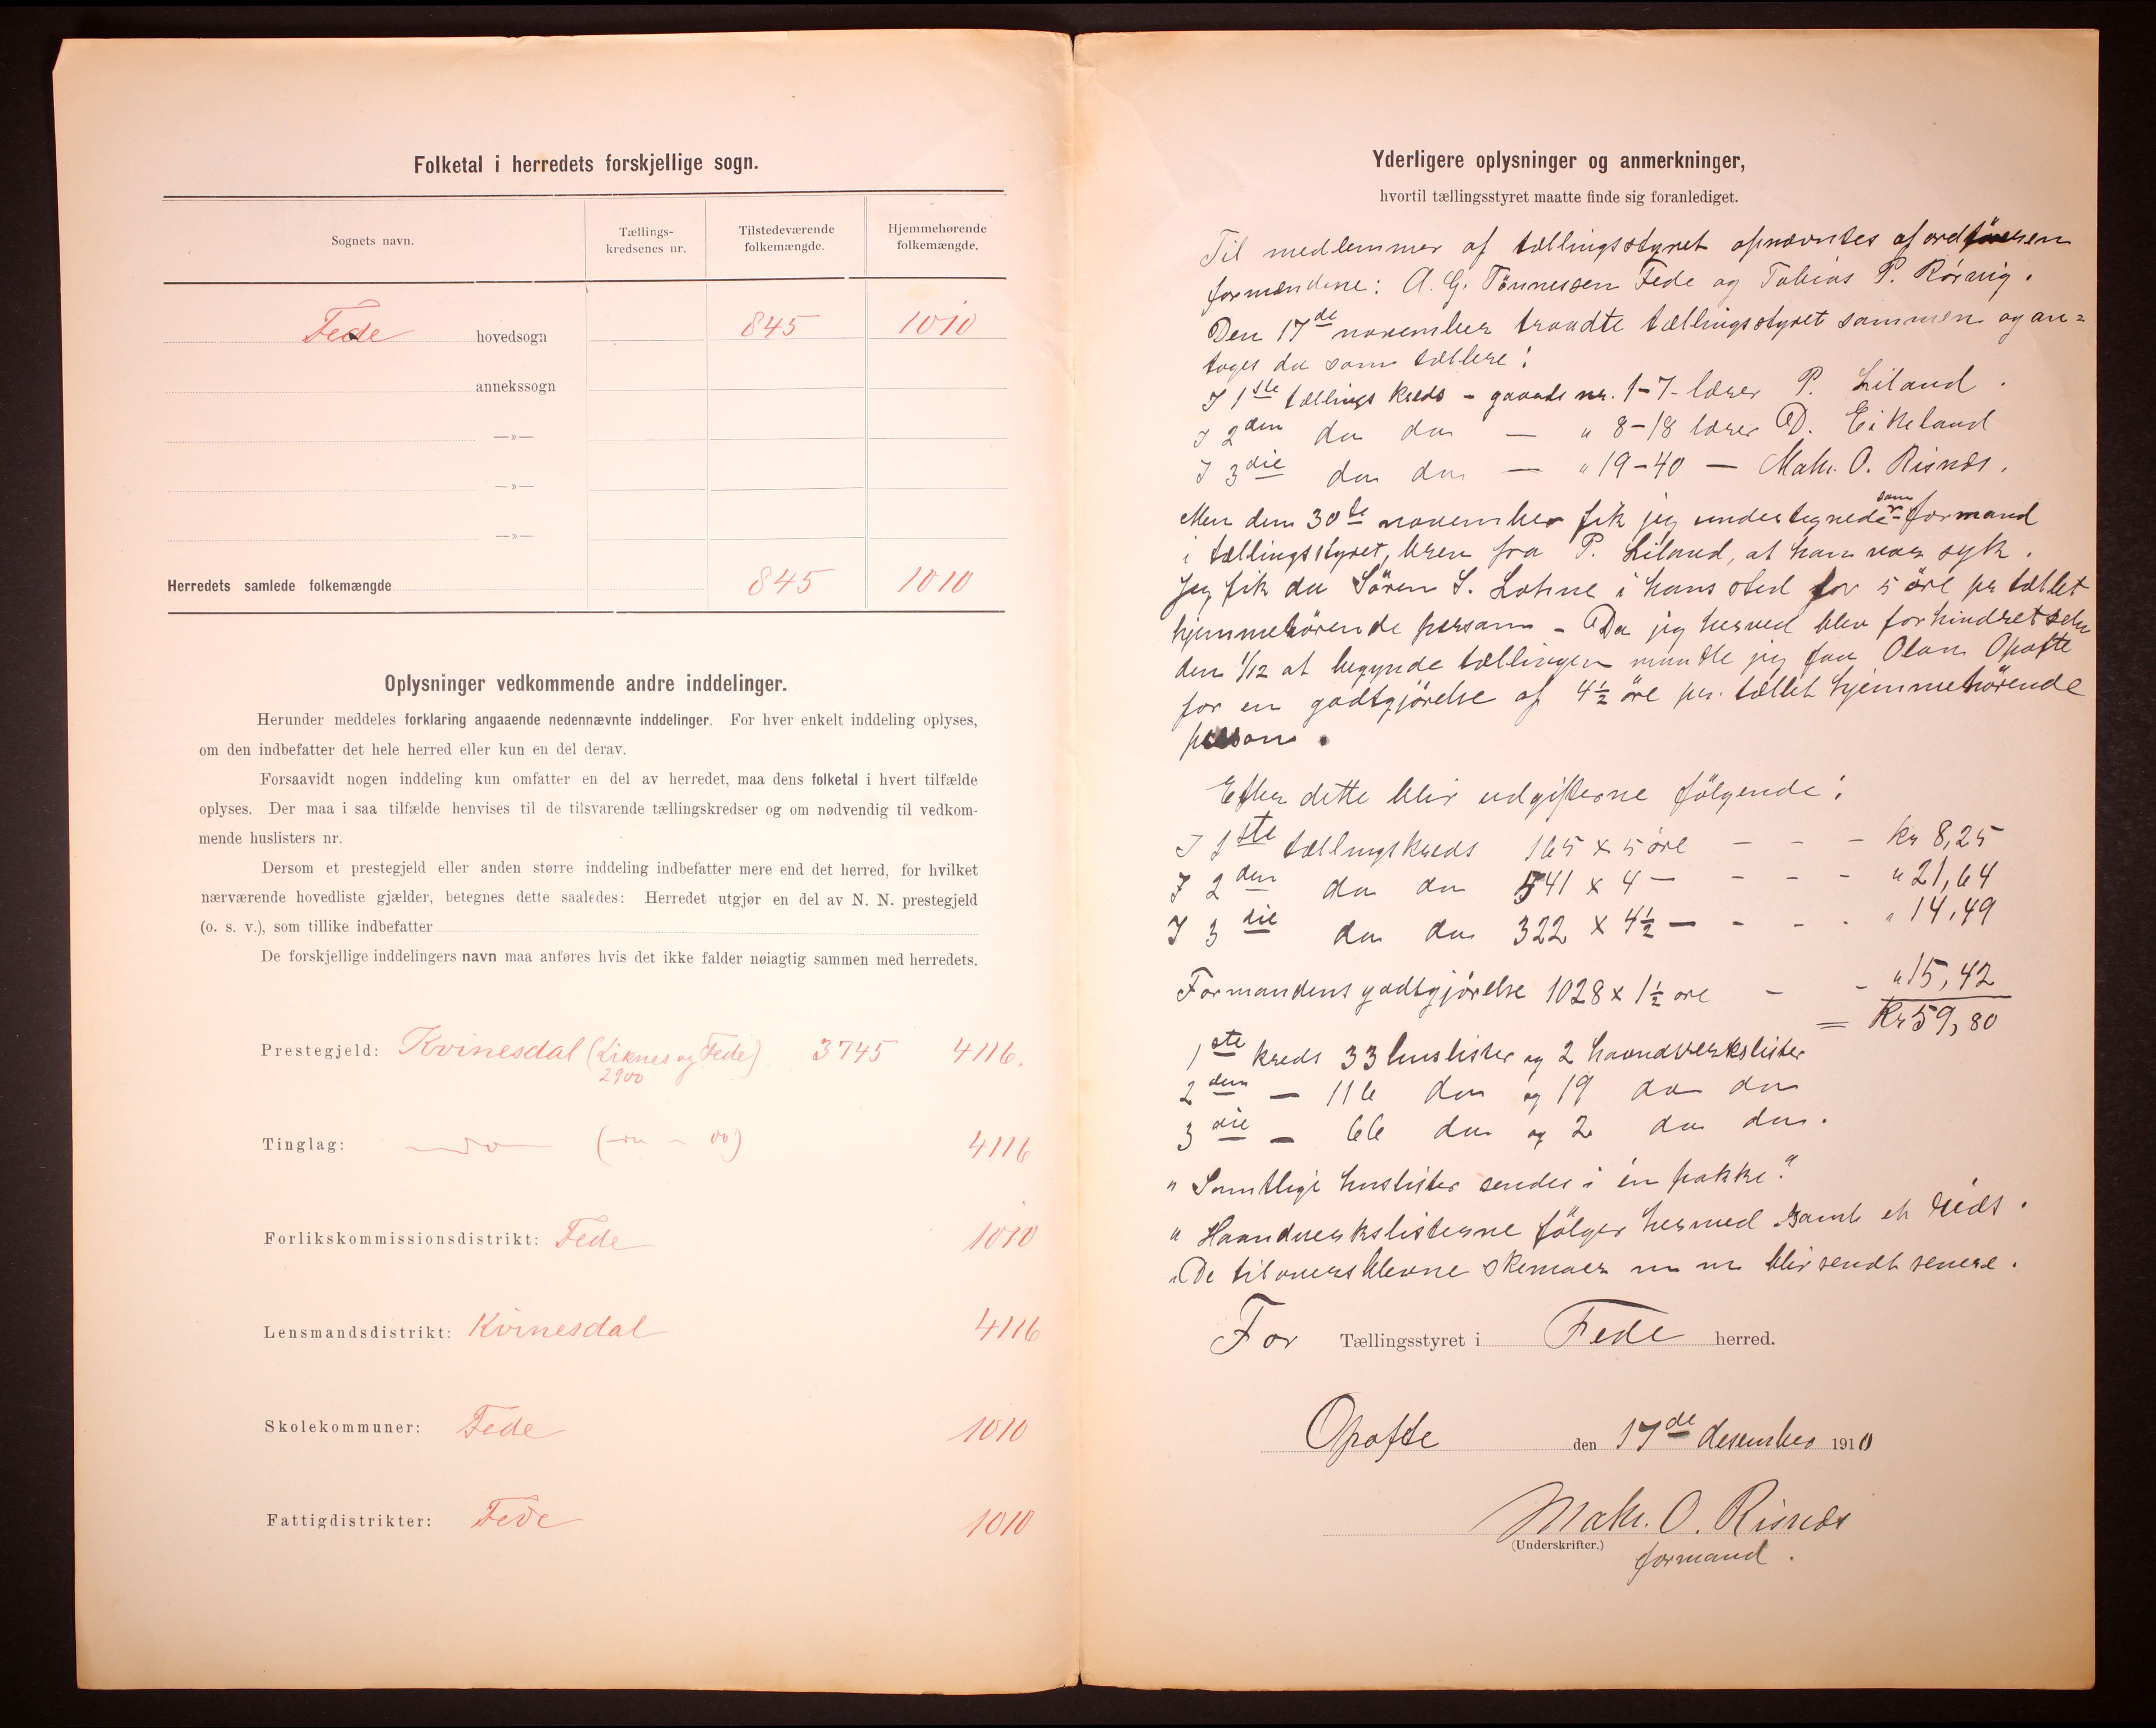 Folketal i herredets forskjellige sogn.
Sognets navn.
Tællings-
kredsenes nr.
Tilstedeværende
folkemængde.
Hjemmehørende
folkemængde.
Fede hovedsogn 845 1010
annekssogn
—»—
—»—
—»—
Herredets samlede folkemængde 845 1010
Oplysninger vedkommende andre inddelinger.
Herunder meddeles forklaring angaaende nedennævnte inddelinger. For hver enkelt inddeling oplyses,
om den indbefatter det hele herred eller kun en del derav.
Forsaavidt nogen inddeling kun omfatter en del av herredet, maa dens folketal i hvert tilfælde
oplyses. Der maa i saa tilfælde henvises til de tilsvarende tællingskredser og om nødvendig til vedkom-
mende huslisters nr.
Dersom et prestegjeld eller anden større inddeling indbefatter mere end det herred, for hvilket
nærværende hovedliste gjælder, betegnes dette saaledes: Herredet utgjør en del av N. N. prestegjeld
(o. s. v.), som tillike indbefatter
De forskjellige inddelingers navn maa anføres hvis det ikke falder nøiagtig sammen med herredets.
Prestegjeld: Kvinesdal (Liknes og Fede) 3745 4116.
2900
Tinglag: —do— 4116
Forlikskommissionsdistrikt: Fede 1010
Lensmandsdistrikt: Kvinesdal 4116
Skolekommuner: Fede 1010
Fattigdistrikter: Fede 1010
Yderligere oplysninger og anmerkninger,
hvortil tællingsstyret maatte finde sig foranlediget.
Til medlemmer af tællingsstyret opnævntes af ordføreren
formændene: A. G. Tönnessen Fede og Tobias P. Rörvig.
Den 17de november traadte tællingsstyret sammen og an=
toges da som tællere:
I 1ste tællingskreds - gaards nr. 1-7 - lærer P. Liland.
I 2den do do — " 8-18 lærer D. Eikeland
I 3die do do — " 19-40 — Math. O. Risnes.
Men den 30te november fik jeg undertegnede som formand
i tællingsstyret, brev fra P. Liland, at han var syk.
Jeg fik da Sören S. Lohne i hans sted for 5 öre pr tællet
hjemmehörende person - Da jeg herved blev forhindret selv
den 1/12 at begynde tællingen maatte jeg faa Olav Opofte
for en godtgjörelse af 4½ öre pr. tællet hjemmehörende
person.
Efter dette blir udgifterne fölgende:
I 1ste tællingskreds 165 x 5 öre - - - kr 8,25
I 2den do do 541 x 4 — - - - " 21,64
I 3die do do 322 x 4½ — - - - " 14,49
Formandens godtgjörelse 1028 x 1½ öre - - " 15,42
= Kr 59,80
1ste kreds 33 huslister og 2 haandverkslister
2den — 116 do og 19 do do
3die — 66 do og 2 do do.
" Samtlige huslister sendes i én pakke."
" Haandverkslisterne fölger hermed samt et rids.
" De tiloversblevne skemaer m m blir sendt senere.
For Tællingsstyret i Fede herred.
Opofte den 17de desember 1910
Math. O. Risnes
(Underskrifter.)
formand.